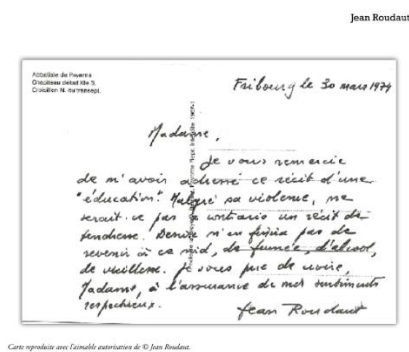 Jean Roudaut
Abbatiale de Payerne
Chapiteau détail XIe S.
Croisillon N. du transept.
Fribourg le 30 mars 1979
Madame,
je vous remercie
de m'avoir adressé ce récit d'une
"éducation". Malgré sa violence, ne
serait-ce pas a contrario un récit de
tendresse. Denise n'en finira pas de
revenir à ce nid, de fumée, d'alcool,
de vieillesse. Je vous prie de croire,
Madame, à l'assurance de mes sentiments
respectueux.
Jean Roudaut
Carte reproduite avec l'aimable autorisation de © Jean Roudaut.